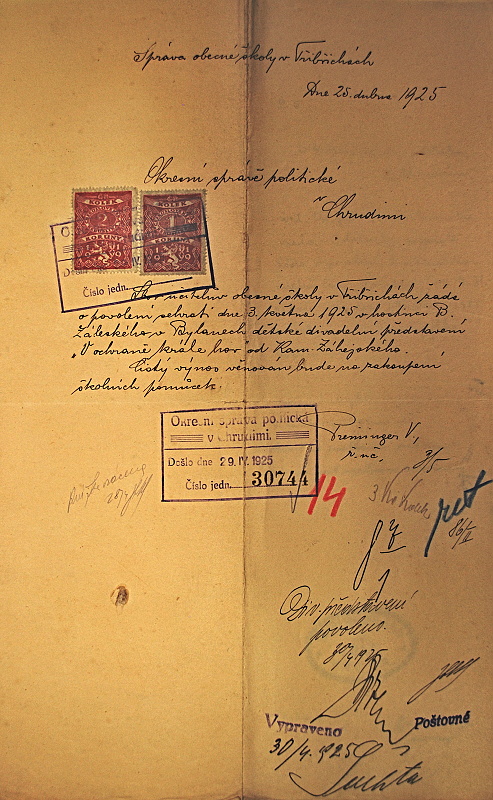 Správa obecné školy v Třibřichách
Dne 25. dubna 1925
Okresní správě politické
v Chrudimi
KOLEK
2
KORUNY
KOLEK
Došlo
Číslo jedn.
učitelstvo obecné školy v Třibřichách žádá
o povolení sehrati dne 3. května 1925 v hostinci B.
Záleského, v Bylanech dětské divadelní představení
"V ochraně krále hor" od Kam. Záhejského.
Čistý výnos věnován bude na zakoupení
školních pomůcek.
Okresní správa politická
v Chrudimi.
Došlo dne 29. IV. 1925
Číslo jedn. 30744
Preininger V.,
ř. uč.
3/5
14
3 Kč kolek
Div. představení
povoleno.
30/4 1925
Vypraveno
Poštovné
30/4. 1925
Suchta